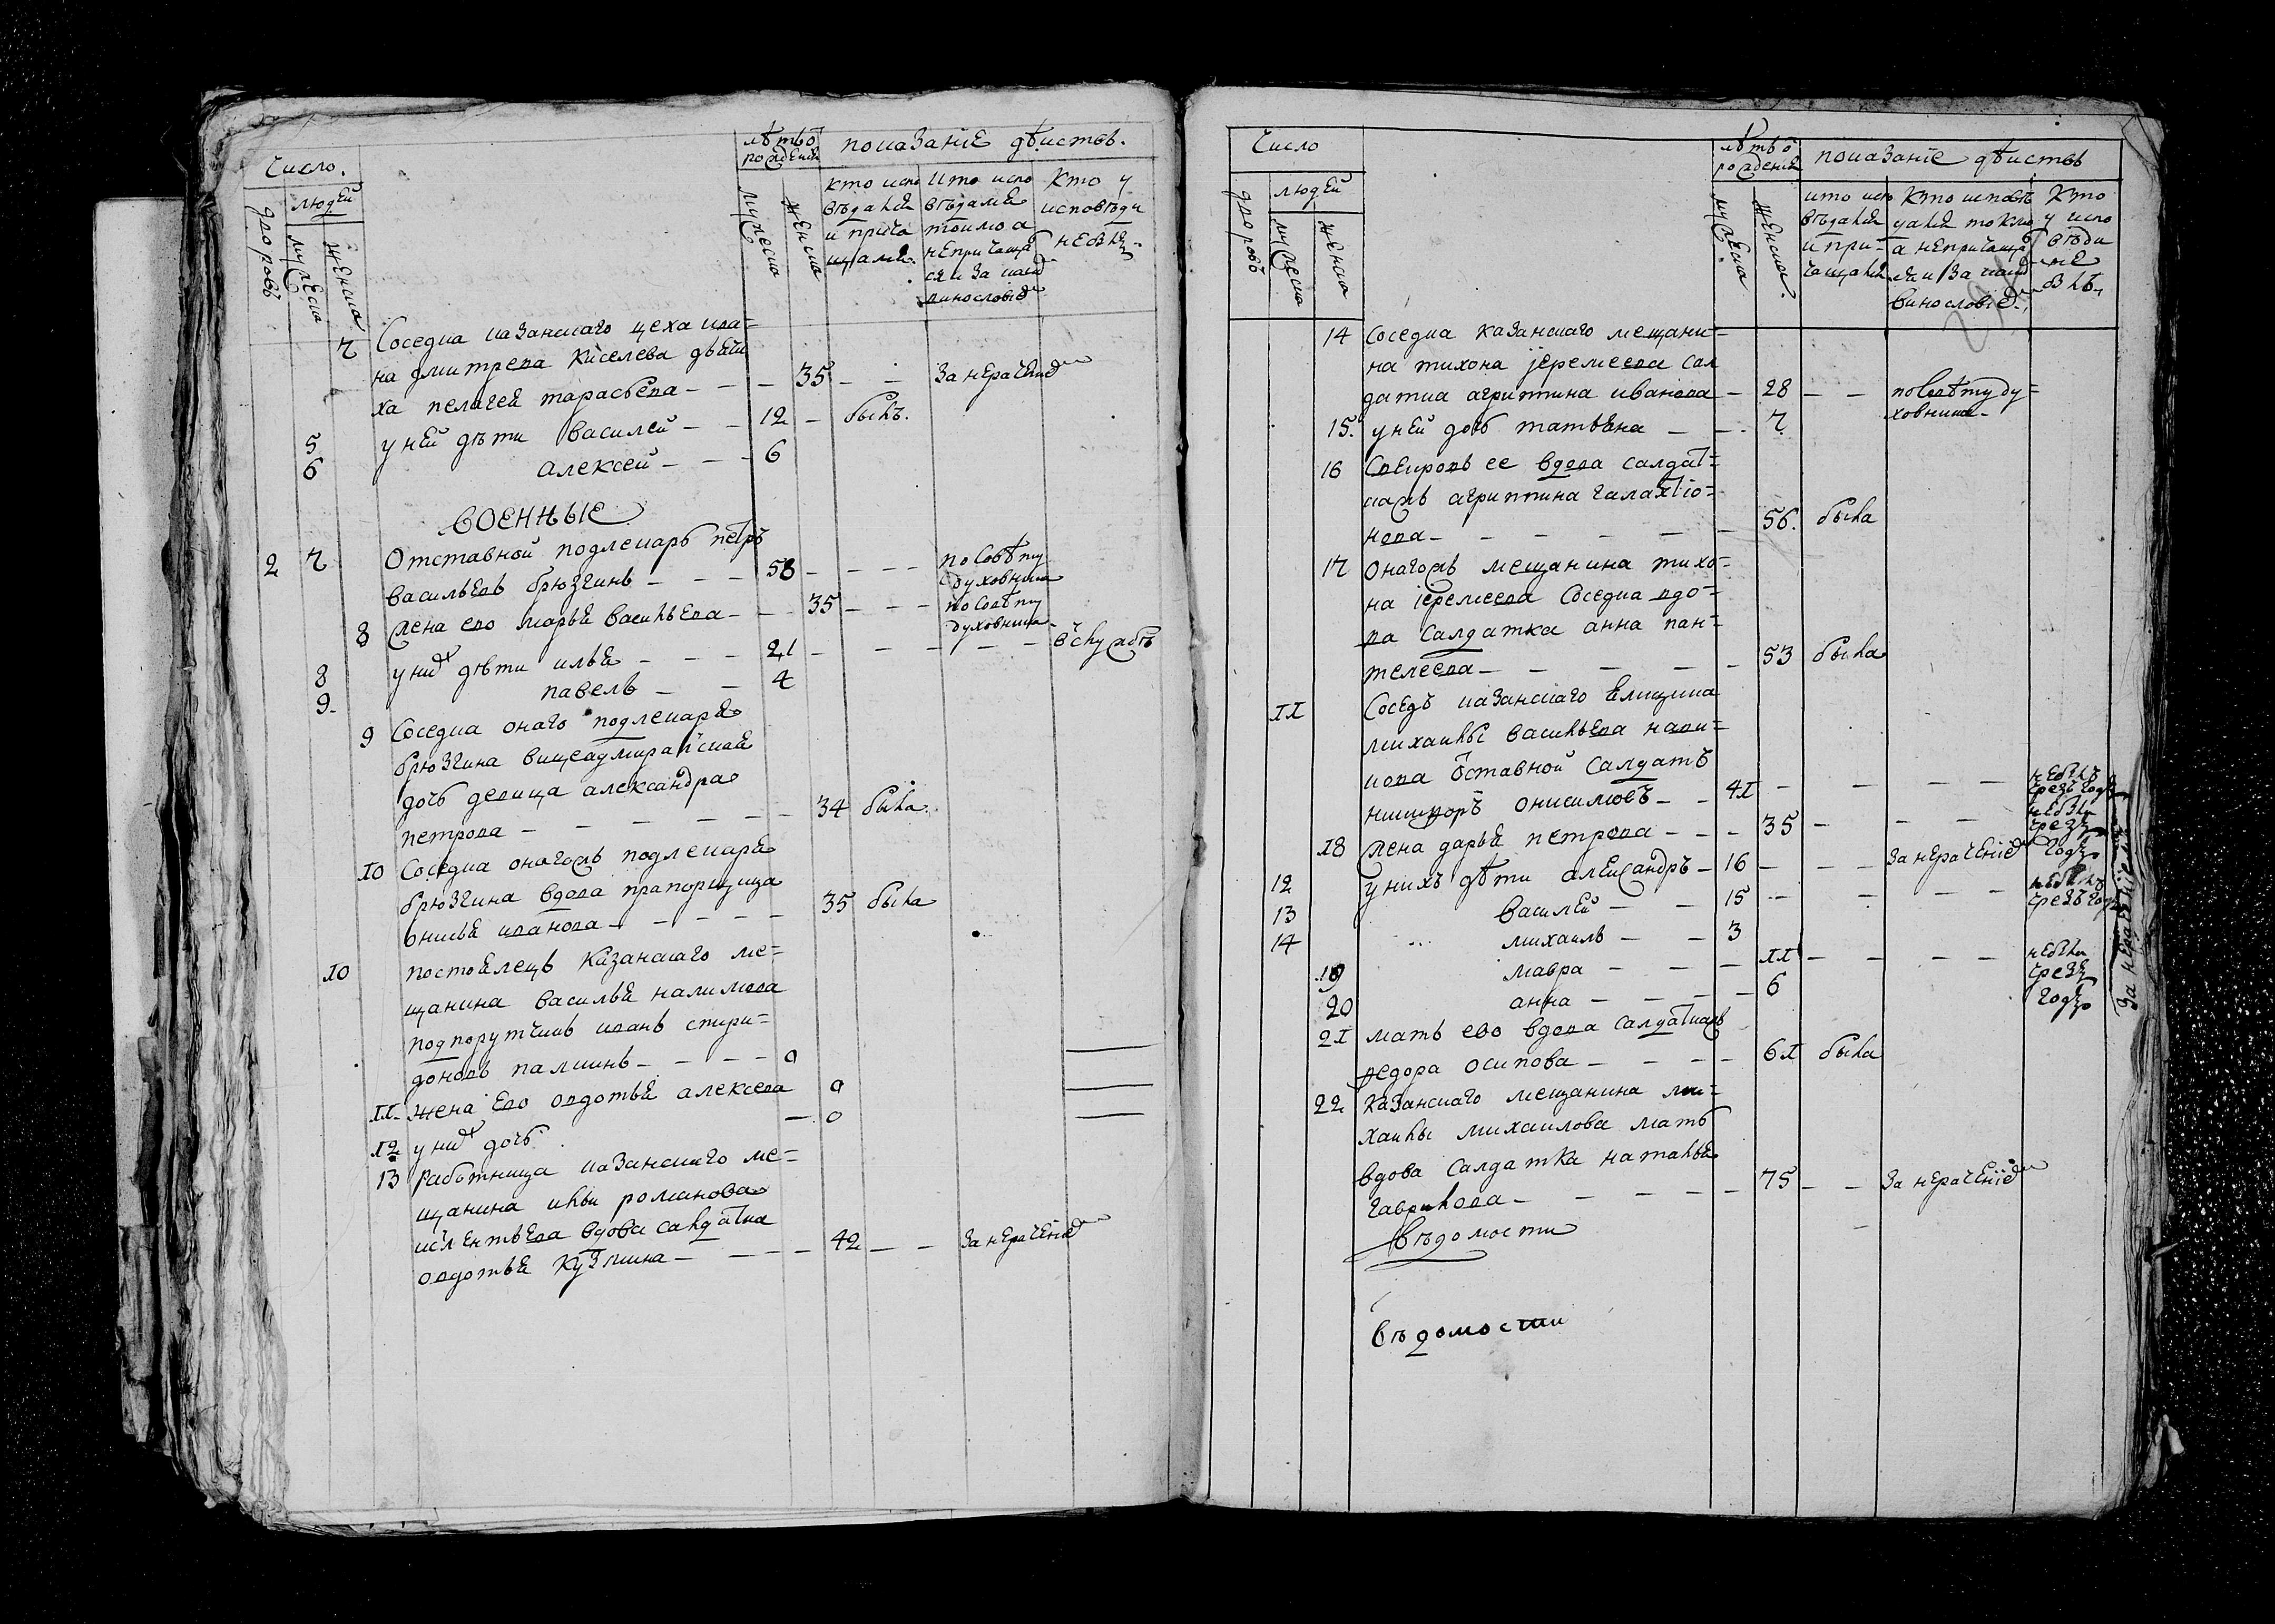 Число.
лѣтъ ѿ рожденія
показаніе дѣйствъ.
дворовъ
людей
мужеска
женска
мужеска
женска
кто испо
вѣдался
и прича
щался
кто испо
вѣдался
токмо а
не причаща
ся и за каки
винословіе
кто у
исповѣди
не былъ
7 Соседка казанскаго цеха ива=
на дмитрева киселева дьячи
ха пелагея тарасьева — — — 35 — — за нерачениемъ
5 у ней дѣти василей — — 12 — былъ.
6 алексей — — — 6
военные
2 7 Отставной подлекарь петръ
васильевъ брюзгинъ — — — 58 — — — — по совѣту
духовника
8 жена ево марья васильева — — 35 — — — по совѣту
духовника
8 у нихъ дѣти илья — — — 21 — — — — — в службѣ
9. павелъ — — 4
9 Соседка онаго подлекаря
брюзгина вицеадмиральская
дочь девица александра
петрова — — — — — — 34 была
10 Соседка онагожъ подлекаря
брюзгина вдова прапорщица
онисья иванова — — — — 35 была
10 постоялецъ казанскаго ме=
щанина василья налимова
подпорутчикъ иванъ спири=
доновъ палкинъ — — — — 0
11. жена ево овдотья алексева 0
12 у нихъ дочь — 0
13 Работница казанскаго ме=
щанина ильи романова
вдова салдатка
овдотья кузмина — — — — 42 — — за нерачениемъ
Число
лѣтъ ѿ рожденія
показаніе дѣйствъ
дворовъ
людей
мужеска
женска
мужеска
женска.
кто испо
вѣдался
и при=
чащался
кто исповѣ
дался токмо
а не причаща
ся и за каки
винословіе
кто
у испо
вѣди
не
былъ
14 Соседка казанскаго мещани=
на тихона јеремеева сал
датка агрипина иванова — 28 — — по совѣту ду=
ховника
15. у ней дочь татьяна — — 7
16 Свекровь ее вдова салдат=
кажъ агрипина галактіо=
нова — — — — — — 56. была
17 Онагожъ мещанина тихо=
на јеремеева соседка вдо=
ва салдатка анна пан=
телеева — — — — — 53 была
11 Соседъ казанскаго ямщика
михаилы васильева нови=
кова ѿставной салдатъ
никифоръ онисимовъ — — 41 — — — — не былъ
чрезъ годъ
18 жена дарья петрова — — — 35 — — — не была
чрезъ
годъ
12 у нихъ дѣти александръ — 16 — — — за нерачениемъ
13 василей — — 15 — — — — не былъ
чрезъ годъ
14 михаилъ — — 3
19 мавра — — — 11 — — — — не была
чрезъ
годъ
20 анна — — — — 6
за нерачениемъ
21 мать ево вдова салдаткажъ
федора осипова — — — — 61 была
22 казанскаго мещанина ми=
хаилы михаилова мать
вдова салдатка наталья
гаврилова — — — — — — 75 — — за нерачениемъ
вѣдомости
вѣдомости